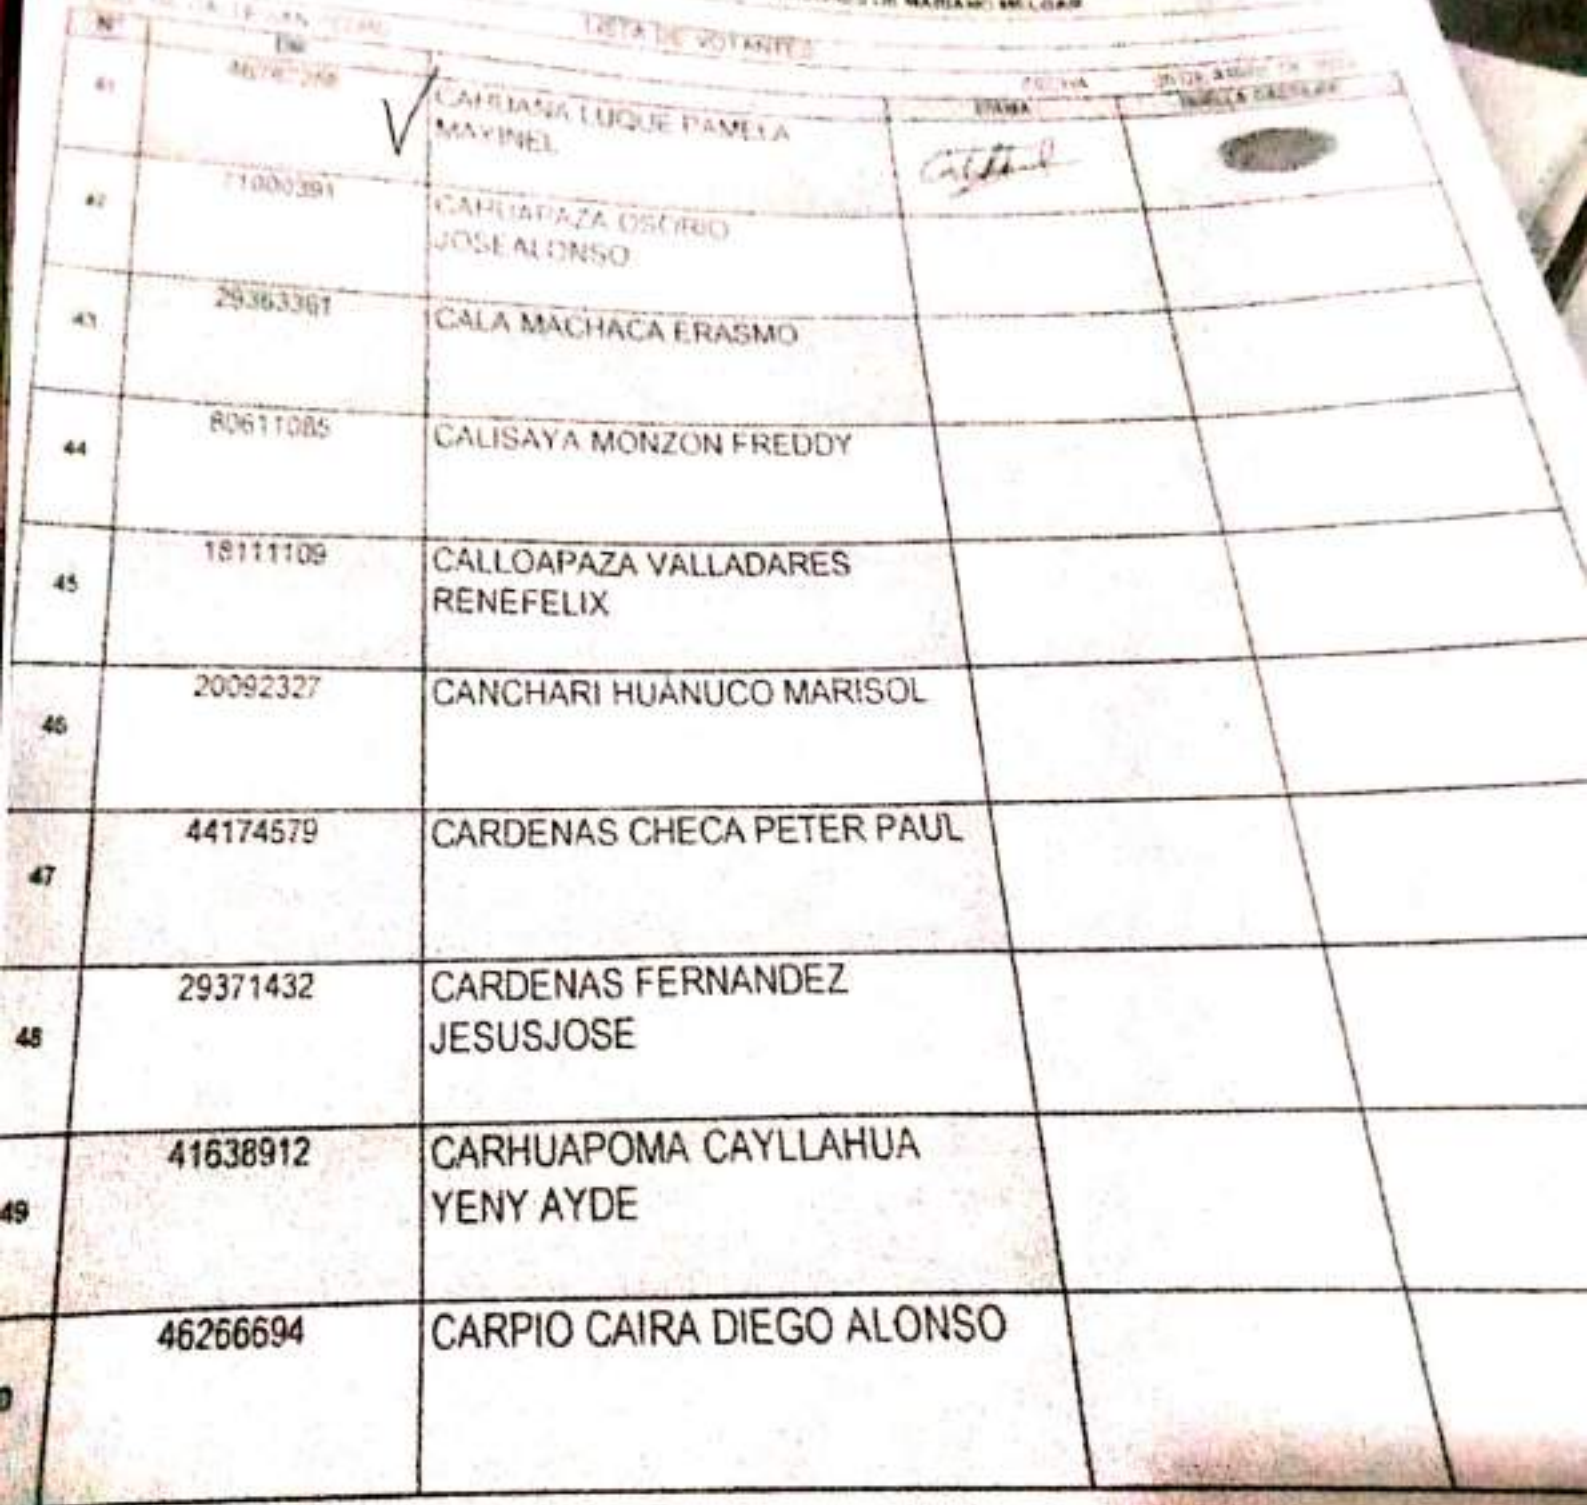 MARIANO MELGAR
LISTA DE VOTANTES
N°
FIRMA
HUELLA DACTILAR
41
CAHUANA LUQUE PAMELA
MAYINEL
42
71000391
CAHUAPAZA OSORIO
JOSEALONSO
43
29363361
CALA MACHACA ERASMO
44
80611085
CALISAYA MONZON FREDDY
45
18111109
CALLOAPAZA VALLADARES
RENEFELIX
46
20092327
CANCHARI HUANUCO MARISOL
47
44174579
CARDENAS CHECA PETER PAUL
48
29371432
CARDENAS FERNANDEZ
JESUSJOSE
49
41638912
CARHUAPOMA CAYLLAHUA
YENY AYDE
46266694
CARPIO CAIRA DIEGO ALONSO